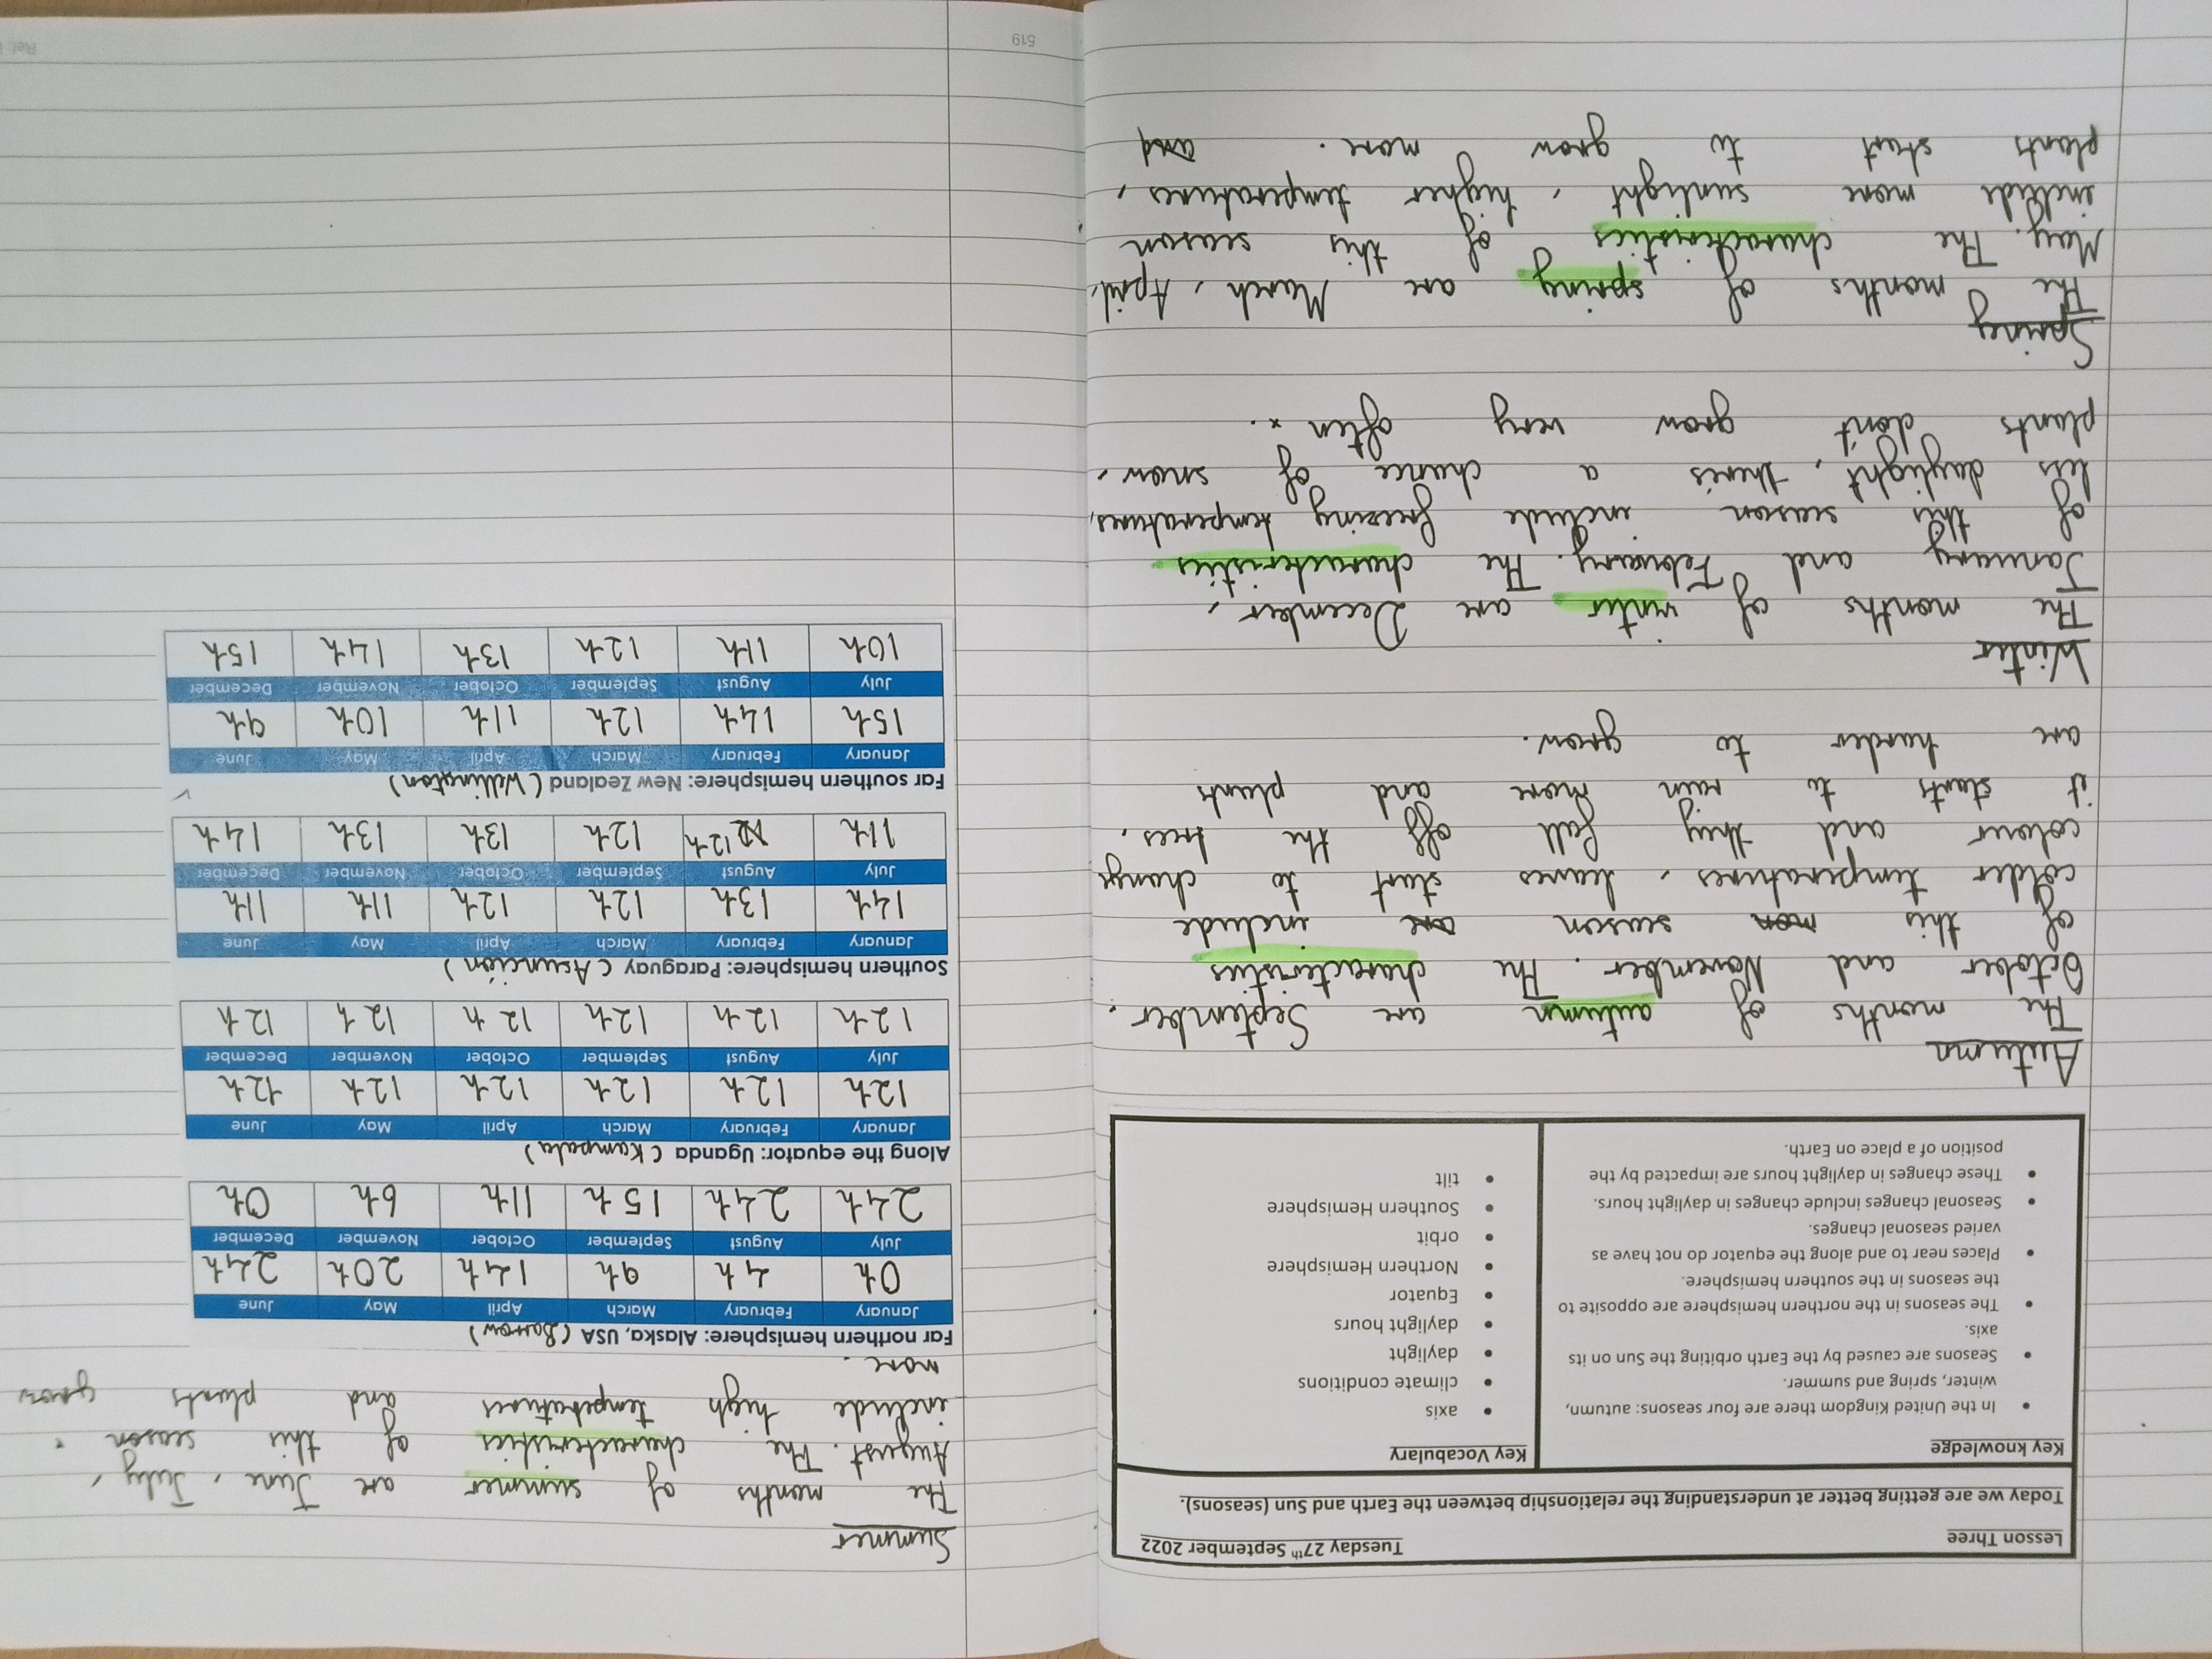 Lesson Three Tuesday 27th September 2022
Today we are getting better at understanding the relationship between the Earth and Sun (seasons).
Key knowledge
• In the United Kingdom there are four seasons: autumn,
winter, spring and summer.
• Seasons are caused by the Earth orbiting the Sun on its
axis.
• The seasons in the northern hemisphere are opposite to
the seasons in the southern hemisphere.
• Places near to and along the equator do not have as
varied seasonal changes.
• Seasonal changes include changes in daylight hours.
• These changes in daylight hours are impacted by the
position of a place on Earth.
Key Vocabulary
• axis
• climate conditions
• daylight
• daylight hours
• Equator
• Northern Hemisphere
• orbit
• Southern Hemisphere
• tilt
Autumn
The months of autumn are September,
October and November. The characteristics
of this mon season are include
colder temperatures, leaves start to change
colour and they fall off the trees,
it starts to rain more and plants
are harder to grow.
Winter
The months of winter are December,
January and February. The characteristics
of this season include freezing temperatures,
less daylight, there's a chance of snow,
plants don't grow very often.
Spring
The months of spring are March, April,
May. The characteristics of this season
include more sunlight, higher temperatures,
plants start to grow more. and
Summer
The months of summer are June, July,
August. The characteristics of this season
include high temperatures and plants grow
more.
Far northern hemisphere: Alaska, USA (Barrow)
January February March April May June
0h 4h 9h 14h 20h 24h
July August September October November December
24h 24h 15h 11h 6h 0h
Along the equator: Uganda (Kampala)
January February March April May June
12h 12h 12h 12h 12h 12h
July August September October November December
12h 12h 12h 12h 12h 12h
Southern hemisphere: Paraguay (Asunción)
January February March April May June
14h 13h 12h 12h 11h 11h
July August September October November December
11h 12h 12h 13h 13h 14h
Far southern hemisphere: New Zealand (Wellington)
January February March April May June
15h 14h 12h 11h 10h 9h
July August September October November December
10h 11h 12h 13h 14h 15h
519
Ref: